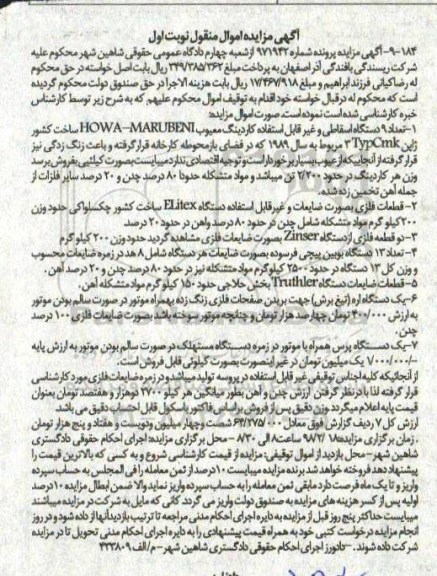 آگهی مزایده اموال منقول نوبت اول
۱۸۴-۹- آگهی مزایده پرونده شماره ۹۷۱۹۴۲ از شعبه چهارم دادگاه عمومی حقوقی شاهین شهر محکوم علیه
شرکت ریسندگی بافندگی آذر اصفهان به پرداخت مبلغ ۳۴۹/۳۸۵/۲۶۲ ریال بابت اصل خواسته در حق محکوم
له رضا کیانی فرزند ابراهیم و مبلغ ۱۷/۴۶۷/۹۱۸ ریال بابت هزینه الاجرا در حق صندوق دولت محکوم گردیده
است که محکوم له در قبال خواسته خود اقدام به توقیف اموال محکوم علیهم که به شرح زیر توسط کارشناس
خبره کارشناسی شده است نموده است. صورت اموال مزایده:
۱- تعداد ۹ دستگاه اسقاطی و غیر قابل استفاده کاردینگ معیوب HOWA-MARUBENI ساخت کشور
ژاپن TypCmk ۳ مربوط به سال ۱۹۸۹ که در فضای باز محوطه کارخانه قرار گرفته و باعث زنگ زدگی نیز
قرار گرفته از آنجاییکه از عیوب بسیار برخوردار است و توجیه اقتصادی ندارد میبایست بصورت کیلئیی بفروش برسد
وزن هر کاردینگ در حدود ۲/۲۰۰ تن میباشد و مواد متشکله حدودا ۸۰ درصد چدن و ۲۰ درصد سایر فلزات از
جمله آهن تخمین زده شده.
۲- قطعات فلزی بصورت ضایعات و غیر قابل استفاده دستگاه ELitex ساخت کشور چکسلواکی حدود وزن
۲۰۰ کیلو گرم مواد متشکله شامل چدن در حدود ۸۰ درصد واهن در حدود ۲۰ درصد
۳- دو قطعه فلزی از دستگاه Zinser بصورت ضایعات فلزی مشاهده گردید حدود وزن ۲۰۰ کیلو گرم
۴- تعداد ۱۳ دستگاه بوبین پیچی فرسوده بصورت ضایعات هر دستگاه شامل ۸ هد در زمره ضایعات محسوب
و وزن کل ۱۳ دستگاه در حدود ۲۵۰۰ کیلوگرم مواد متشکله نیز در حدود ۸۰ درصد چدن و ۲۰ درصد آهن.
۵- قطعات ضایعات دستگاه Truthler بخش حلاجی حدود ۱۵۰ کیلو گرم مواد متشکله آهن.
۶- یک دستگاه اره (تیغ برش) جهت بریدن صفحات فلزی زنگ زده بهمراه موتور در صورت سالم بودن موتور
به ارزش ۴۰۰/۰۰۰ تومان چهار صد هزار تومان و چنانچه موتور سوخته باشد بصورت ضایعات فلزی ۱۰۰ درصد
چدن.
۷- یک دستگاه پرس همراه با موتور در زمره دستگاه مستهلک در صورت سالم بودن موتور به ارزش پایه
-/۱/۰۰۰/۰۰۰ یک میلیون تومان در غیر اینصورت بصورت کیلوئی قابل فروش است.
از آنجائیکه کلیه اجناس توقیفی غیر قابل استفاده در پروسه تولید میباشد و در زمره ضایعات فلزی مورد کارشناسی
قرار گرفته لذا با در نظر گرفتن ارزش چدن و آهن بطور میانگین هر کیلو ۲۷۰۰ دو هزار و هفتصد تومان بعنوان
قیمت پایه اعلام میگردد وزن دقیق پس از فروش بر اساس فاکتور باسکول قابل احتساب دقیق می باشد
ارزش کل ۷ ردیف گزارش فوق معادل ۶۴/۲۷۵/۰۰۰ شصت و چهار میلیون و دویست و هفتاد و پنج هزار تومان
، زمان برگزاری مزایده: ۹۸/۲/۱۸ ساعت ۸ الی ۸/۳۰ - محل برگزاری مزایده: اجرای احکام حقوقی دادگستری
شاهین شهر - محل بازدید از اموال توقیفی: مزایده از قیمت کارشناسی شروع و به کسی که بالاترین قیمت را
پیشنهاد دهد فروخته خواهد شد برنده مزایده میبایست ۱۰ درصد از ثمن معامله را فی المجلس به حساب سپرده
واریز و تا یک ماه فرصت دارد مابقی ثمن معامله را به حساب سپرده واریز نماید والا ضمن ابطال مزایده ۱۰ درصد
اولیه پس از کسر هزینه های مزایده به صندوق دولت واریز می گردد. کانی که مایل به شرکت در مزایده میباشند
میبایست حداکثر پنج روز قبل از مزایده به دایره اجرای احکام مدنی مراجعه تا ترتیب بازدید آنها از داده شود و در روز
انجام مزایده درخواست کتبی خود به همراه قیمت پیشنهادی را به دایره اجرای احکام مدنی تحویل تا در مزایده
شرکت داده شوند. - دادورز اجرای احکام حقوقی دادگستری شاهین شهر - م/الف ۴۳۳۸۰۹